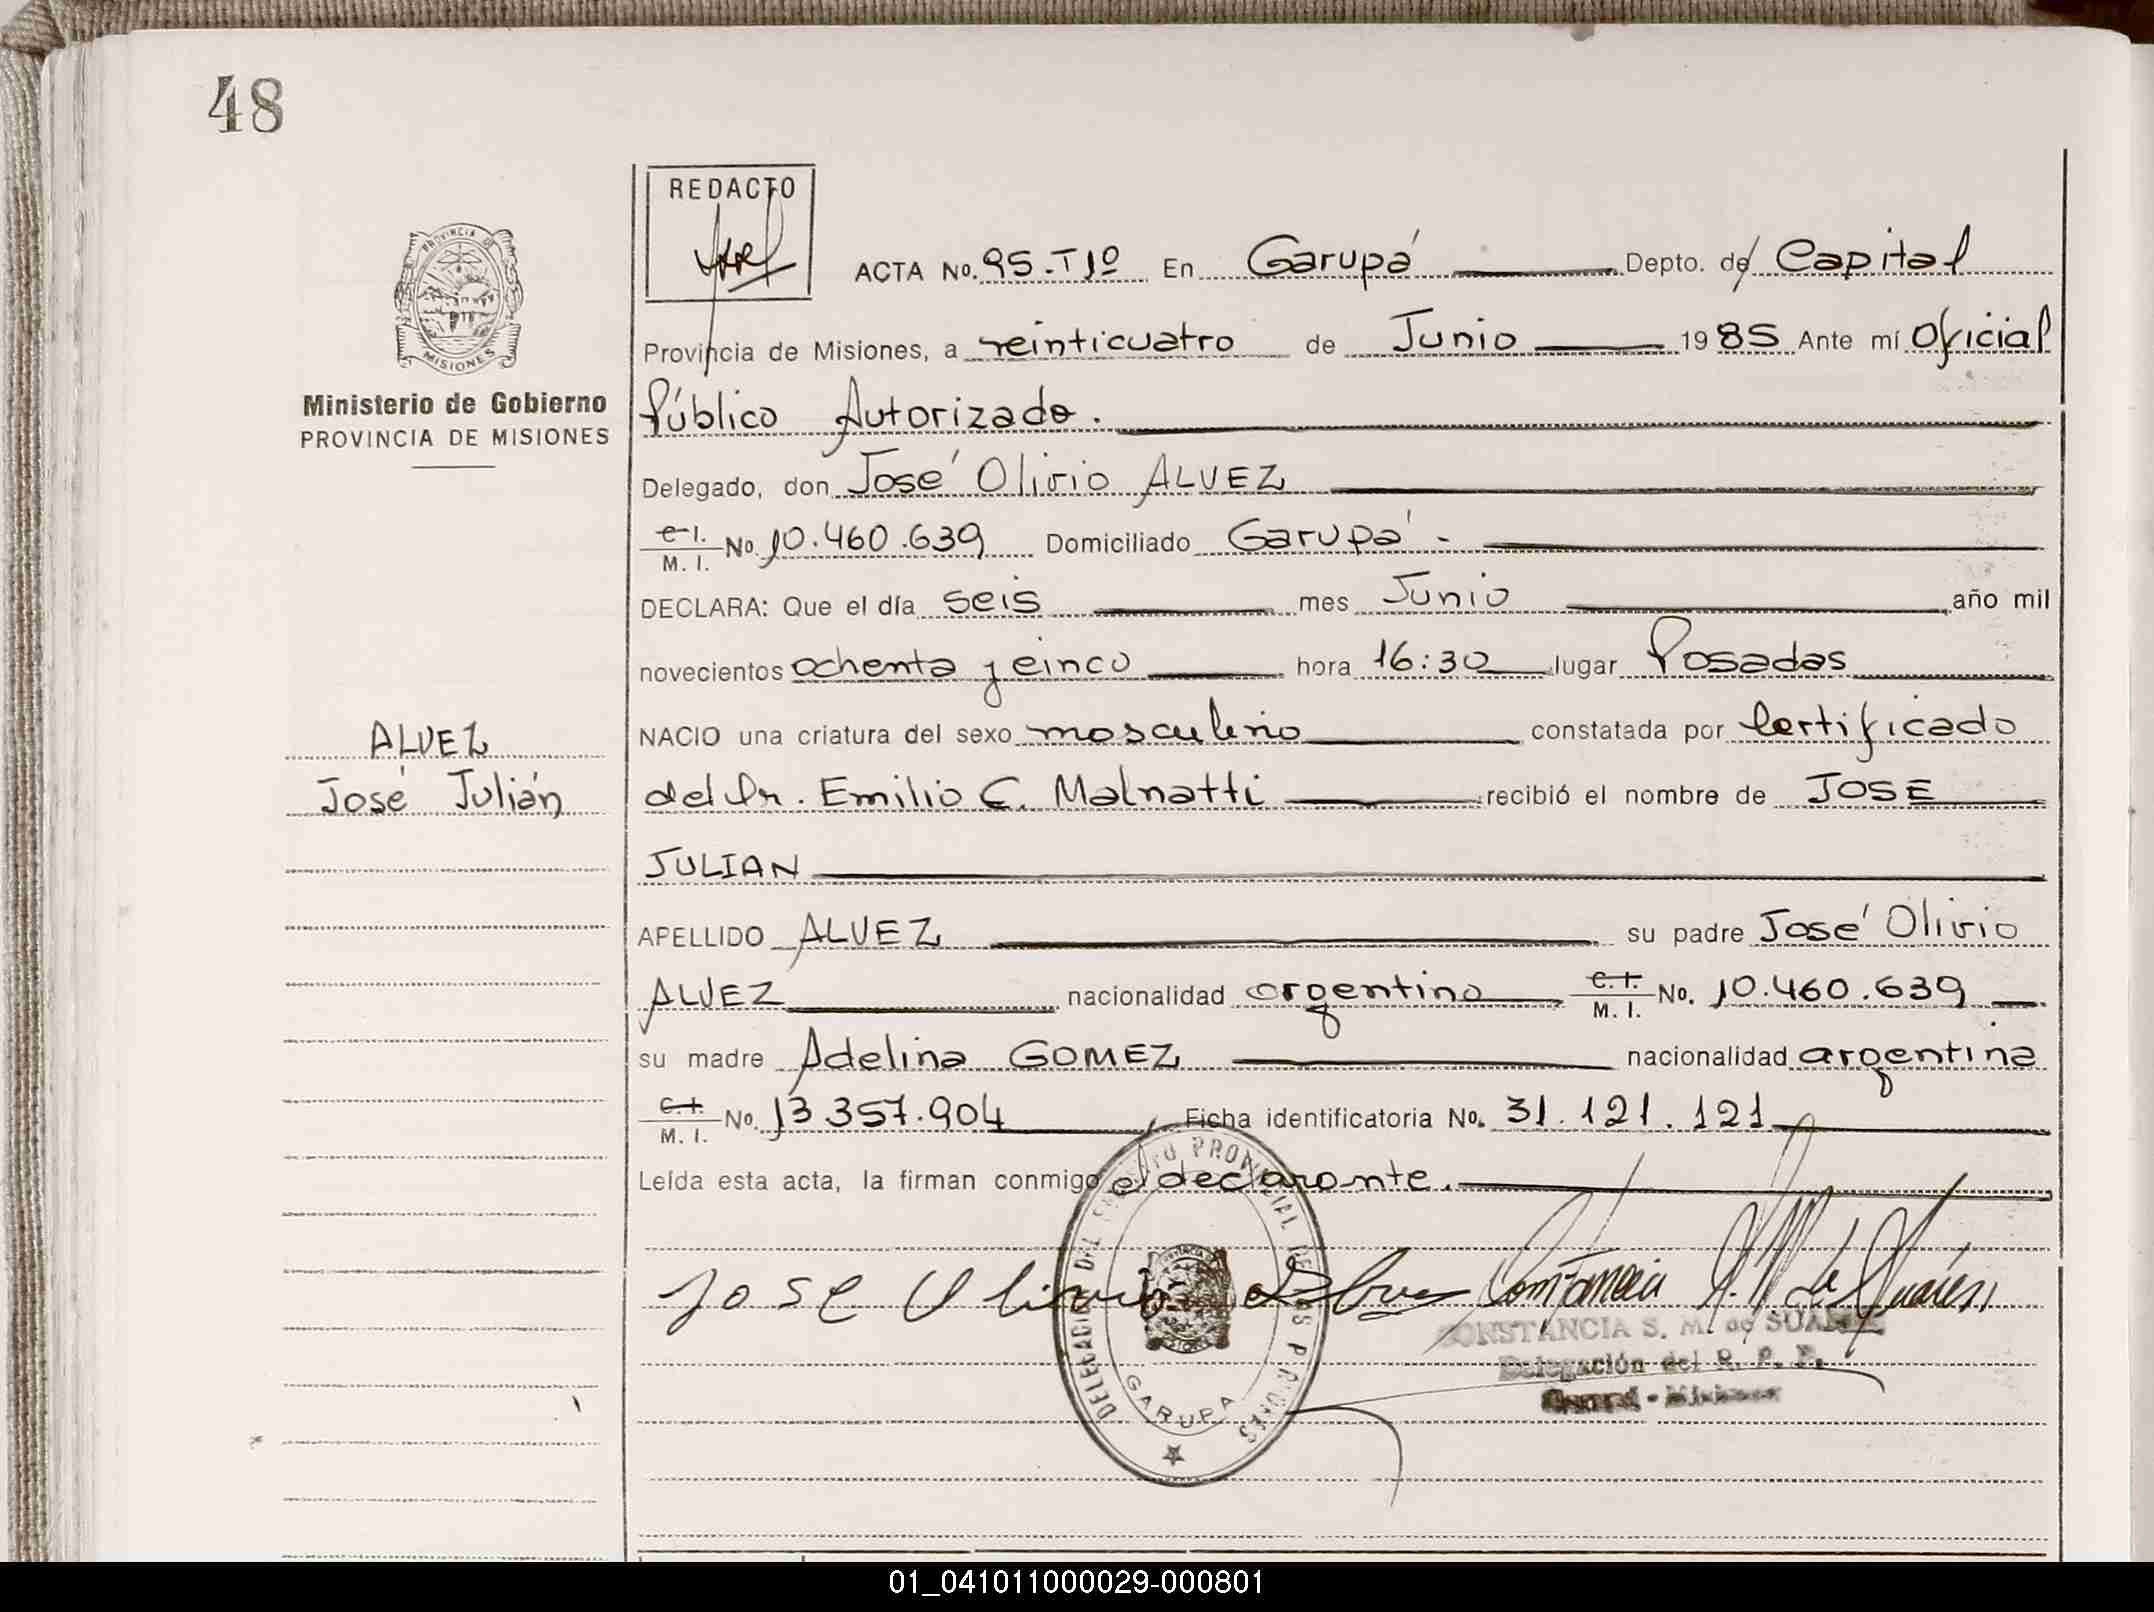 48
REDACTO
PROVINCIA DE
MISIONES
Ministerio de Gobierno
PROVINCIA DE MISIONES
ALVEZ
José Julián
ACTA No. 95.T1º En Garupá Depto. de Capital
Provincia de Misiones, a veinticuatro de Junio 1985 Ante mí Oficial
Público Autorizado.
Delegado, don José Olivio ALVEZ
C.I. M. I. No. 10.460.639 Domiciliado Garupá.-
DECLARA: Que el día seis mes Junio año mil
novecientos ochenta y cinco hora 16:30 lugar Posadas
NACIO una criatura del sexo masculino constatada por Certificado
del Dr. Emilio C. Malnatti recibió el nombre de JOSE
JULIAN
APELLIDO ALVEZ su padre José Olivio
ALVEZ nacionalidad argentino, C.I. M. I. No. 10.460.639
su madre Adelina GOMEZ nacionalidad argentina
C.I. M. I. No. 13.357.904, Ficha identificatoria No. 31.121.121
Leída esta acta, la firman conmigo el declarante.
Jose Olivio Constancia S. M. de Suárez
CONSTANCIA S. M. de SUAREZ
Delegación del R. P. P.
Garupá - Misiones
DELEGACION DEL REGISTRO PROVINCIAL DE LAS P
GARUPA
01_041011000029-000801